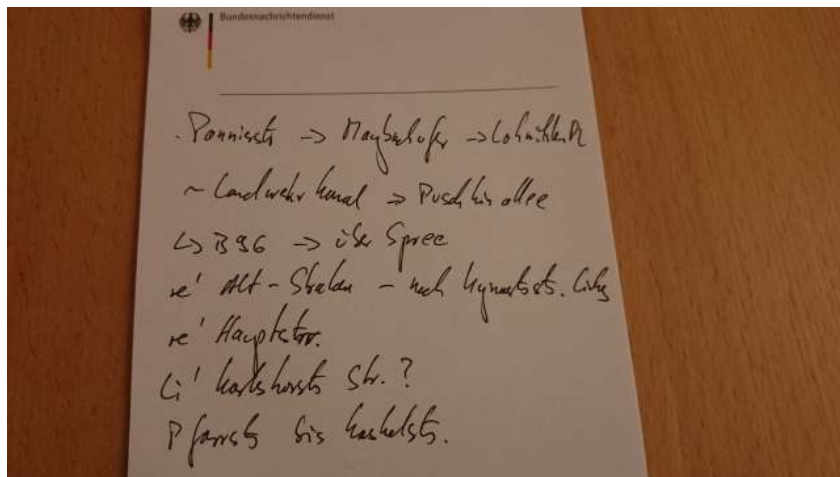 Bundesnachrichtendienst
Pannierstr -> Maybachufer -> Lohmühlenbr
~ Landwehrkanal -> Puschkinallee
↳ B96 -> über Spree
re' Alt-Stralau - nach Kynaststr. links
re' Hauptstr.
Li' Karlshorster Str. ?
Pfarrstr bis Kaskelstr.